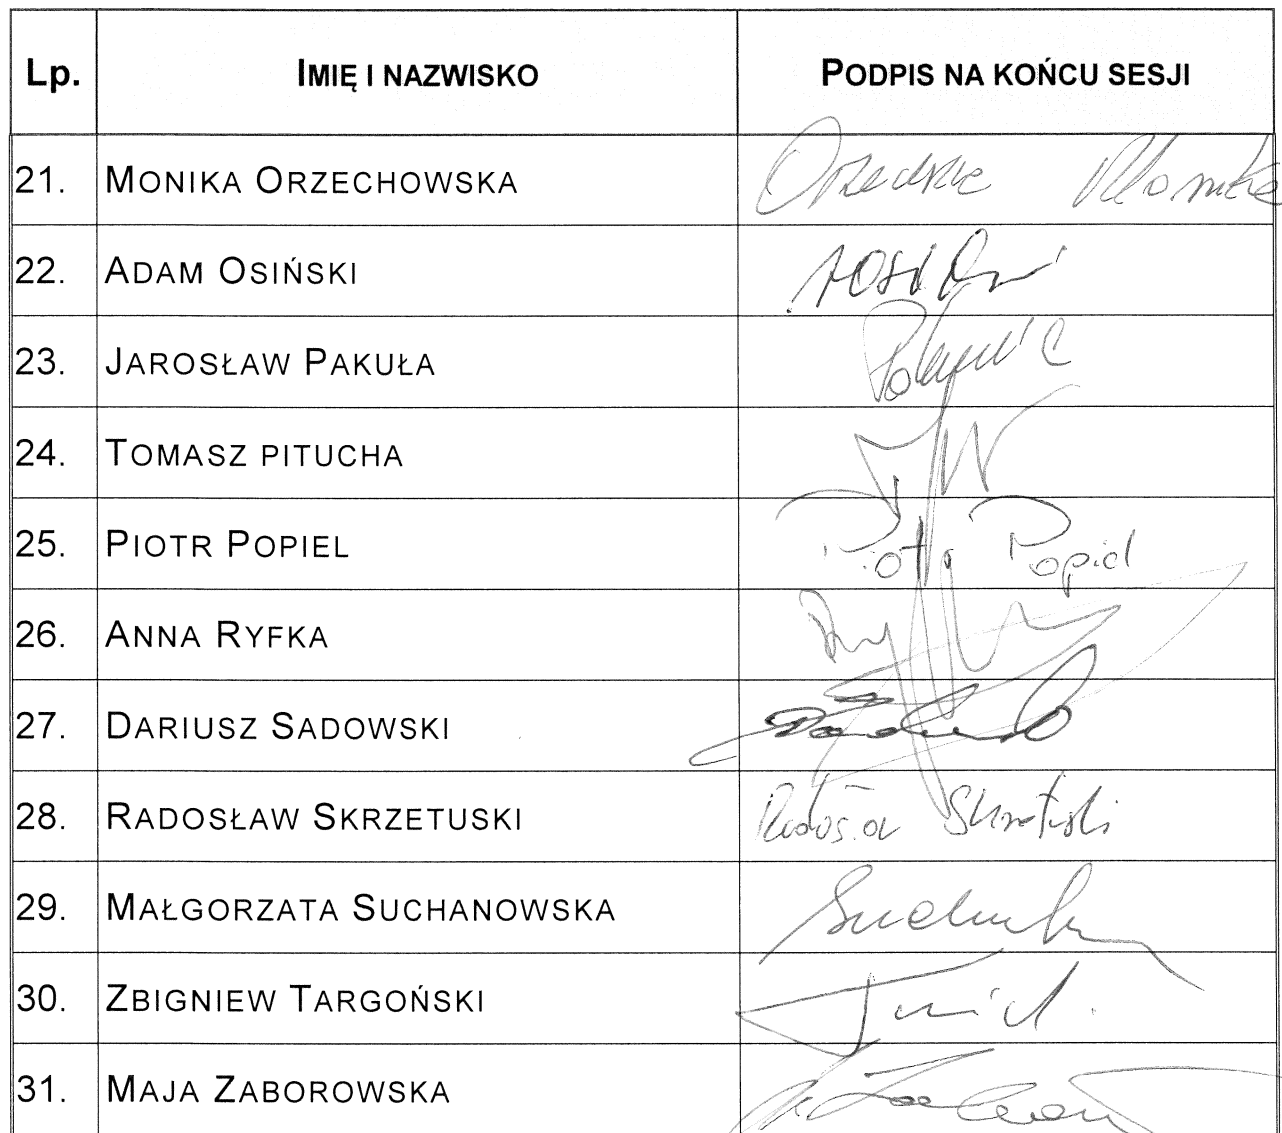 Lp. IMIĘ I NAZWISKO PODPIS NA KOŃCU SESJI
21. MONIKA ORZECHOWSKA
22. ADAM OSIŃSKI
23. JAROSŁAW PAKUŁA
24. TOMASZ PITUCHA
25. PIOTR POPIEL Piotr Popiel
26. ANNA RYFKA
27. DARIUSZ SADOWSKI
28. RADOSŁAW SKRZETUSKI
29. MAŁGORZATA SUCHANOWSKA
30. ZBIGNIEW TARGOŃSKI
31. MAJA ZABOROWSKA